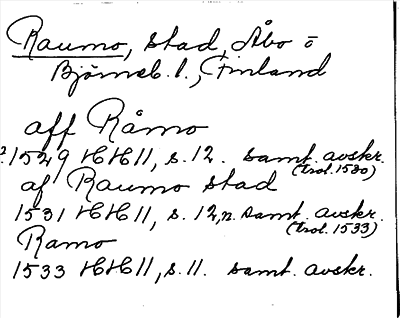 Raumo, stad, Åbo o
Björneb. l., Finland
aff Råmo
? 1529 HH II, s. 12. samt. avskr.
(trol. 1530)
af Raumo stad
1531 HH II, s. 12, n. samt. avskr.
(trol. 1533)
Ramo
1533 HH II, s. 11. samt. avskr.